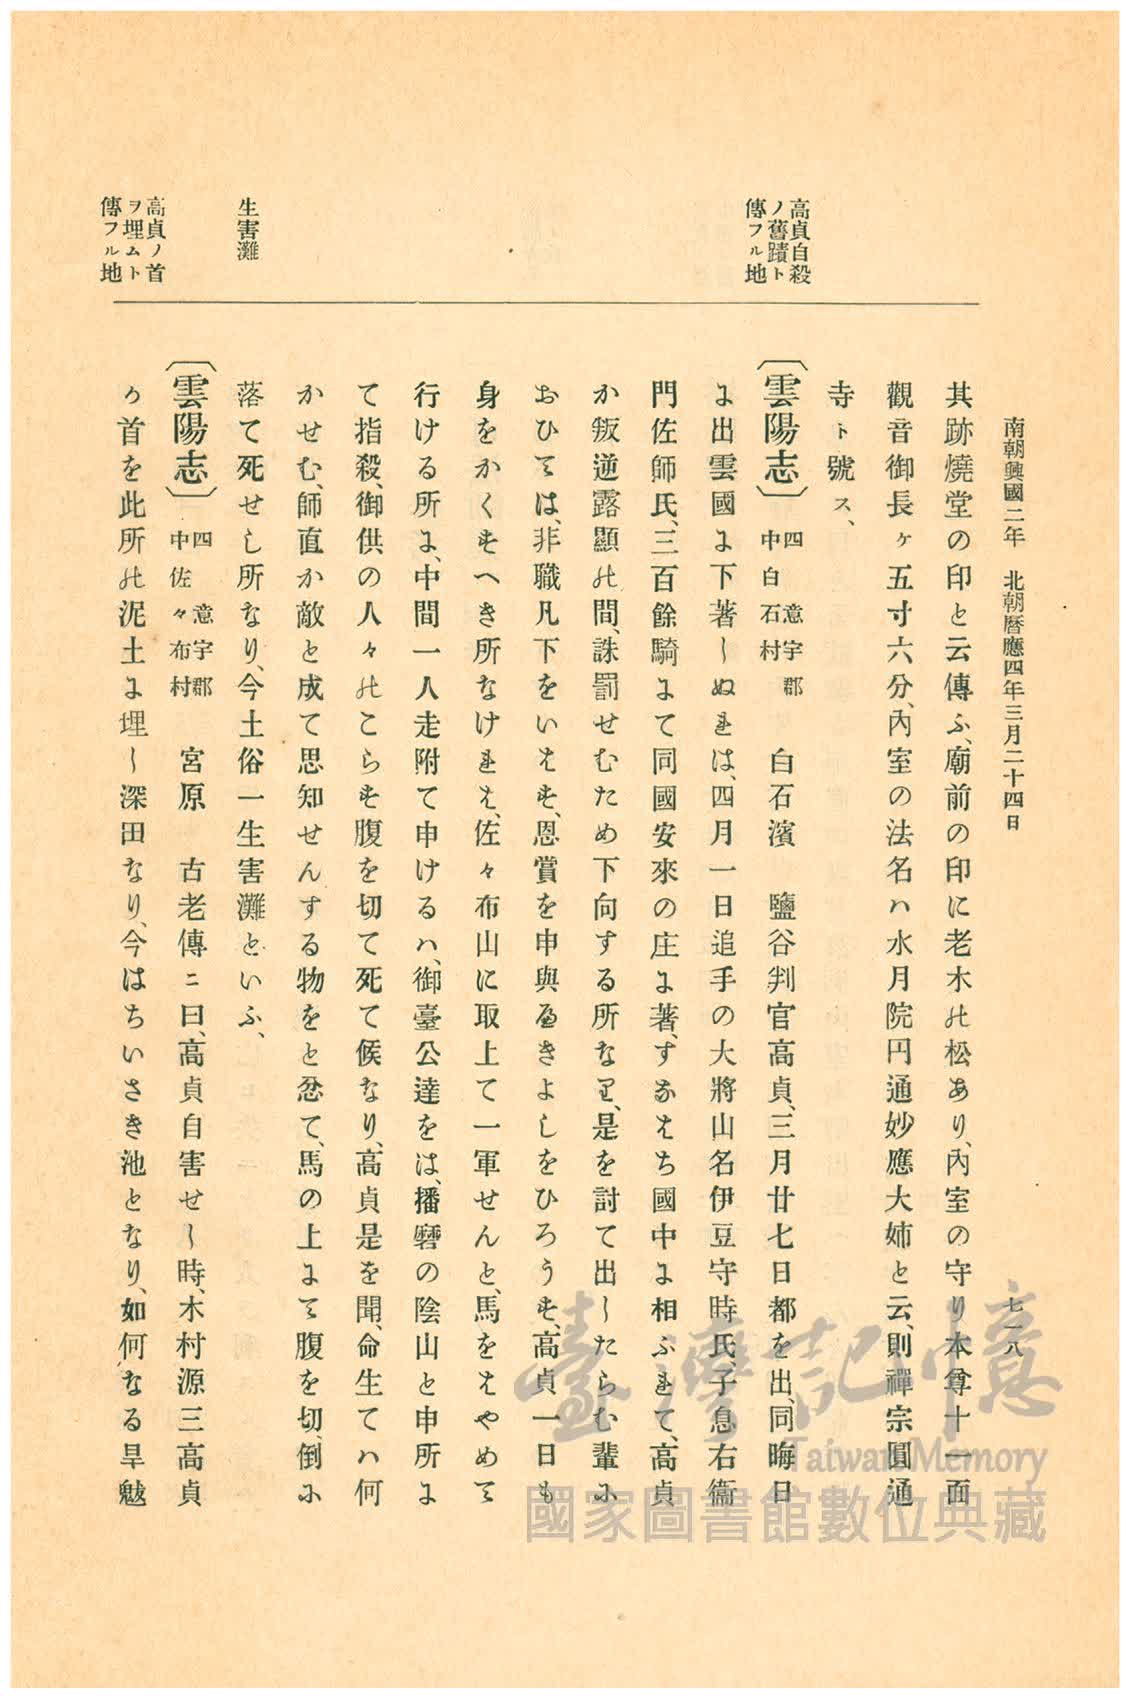 南朝興國二年　北朝曆應四年三月二十四日
七一八
高貞自殺
ノ舊蹟ト
傳フル地
生害灘
高貞ノ首
ヲ埋ムト
傳フル地
其跡燒堂の印と云傳ふ、廟前の印に老木の松あり、內室の守り本尊十一面
觀音御長ヶ五寸六分、內室の法名ハ水月院円通妙應大姉と云、則禪宗圓通
寺ト號ス、
〔雲陽志〕四　意宇郡
中白石村
白石濱　鹽谷判官高貞、三月廿七日都を出、同晦日
に出雲國に下著しぬれは、四月一日追手の大將山名伊豆守時氏、子息右衞
門佐師氏、三百餘騎にて同國安來の庄に著、すなはち國中に相ふれて、高貞
か叛逆露顯の間、誅罰せむため下向する所なり、是を討て出したらむ輩に
おひては、非職凡下をいはす、恩賞を申與へきよしをひろうす、高貞一日も
身をかくすへき所なけれは、佐々布山に取上て一軍せんと、馬をはやめて
行ける所に、中間一人走附て申けるハ、御臺公達をは、播磨の陰山と申所に
て指殺、御供の人々のこらす腹を切て死て候なり、高貞是を聞、命生てハ何
かせむ、師直か敵と成て思知せんする物をと忿て、馬の上にて腹を切、倒に
落て死せし所なり、今土俗一生害灘といふ、
〔雲陽志〕四　意宇郡
中佐々布村
宮原　古老傳ニ曰、高貞自害せし時、木村源三高貞
か首を此所の泥土に埋し深田なり、今はちいさき池となり、如何なる旱魃
臺灣記憶
Taiwan Memory
國家圖書館數位典藏